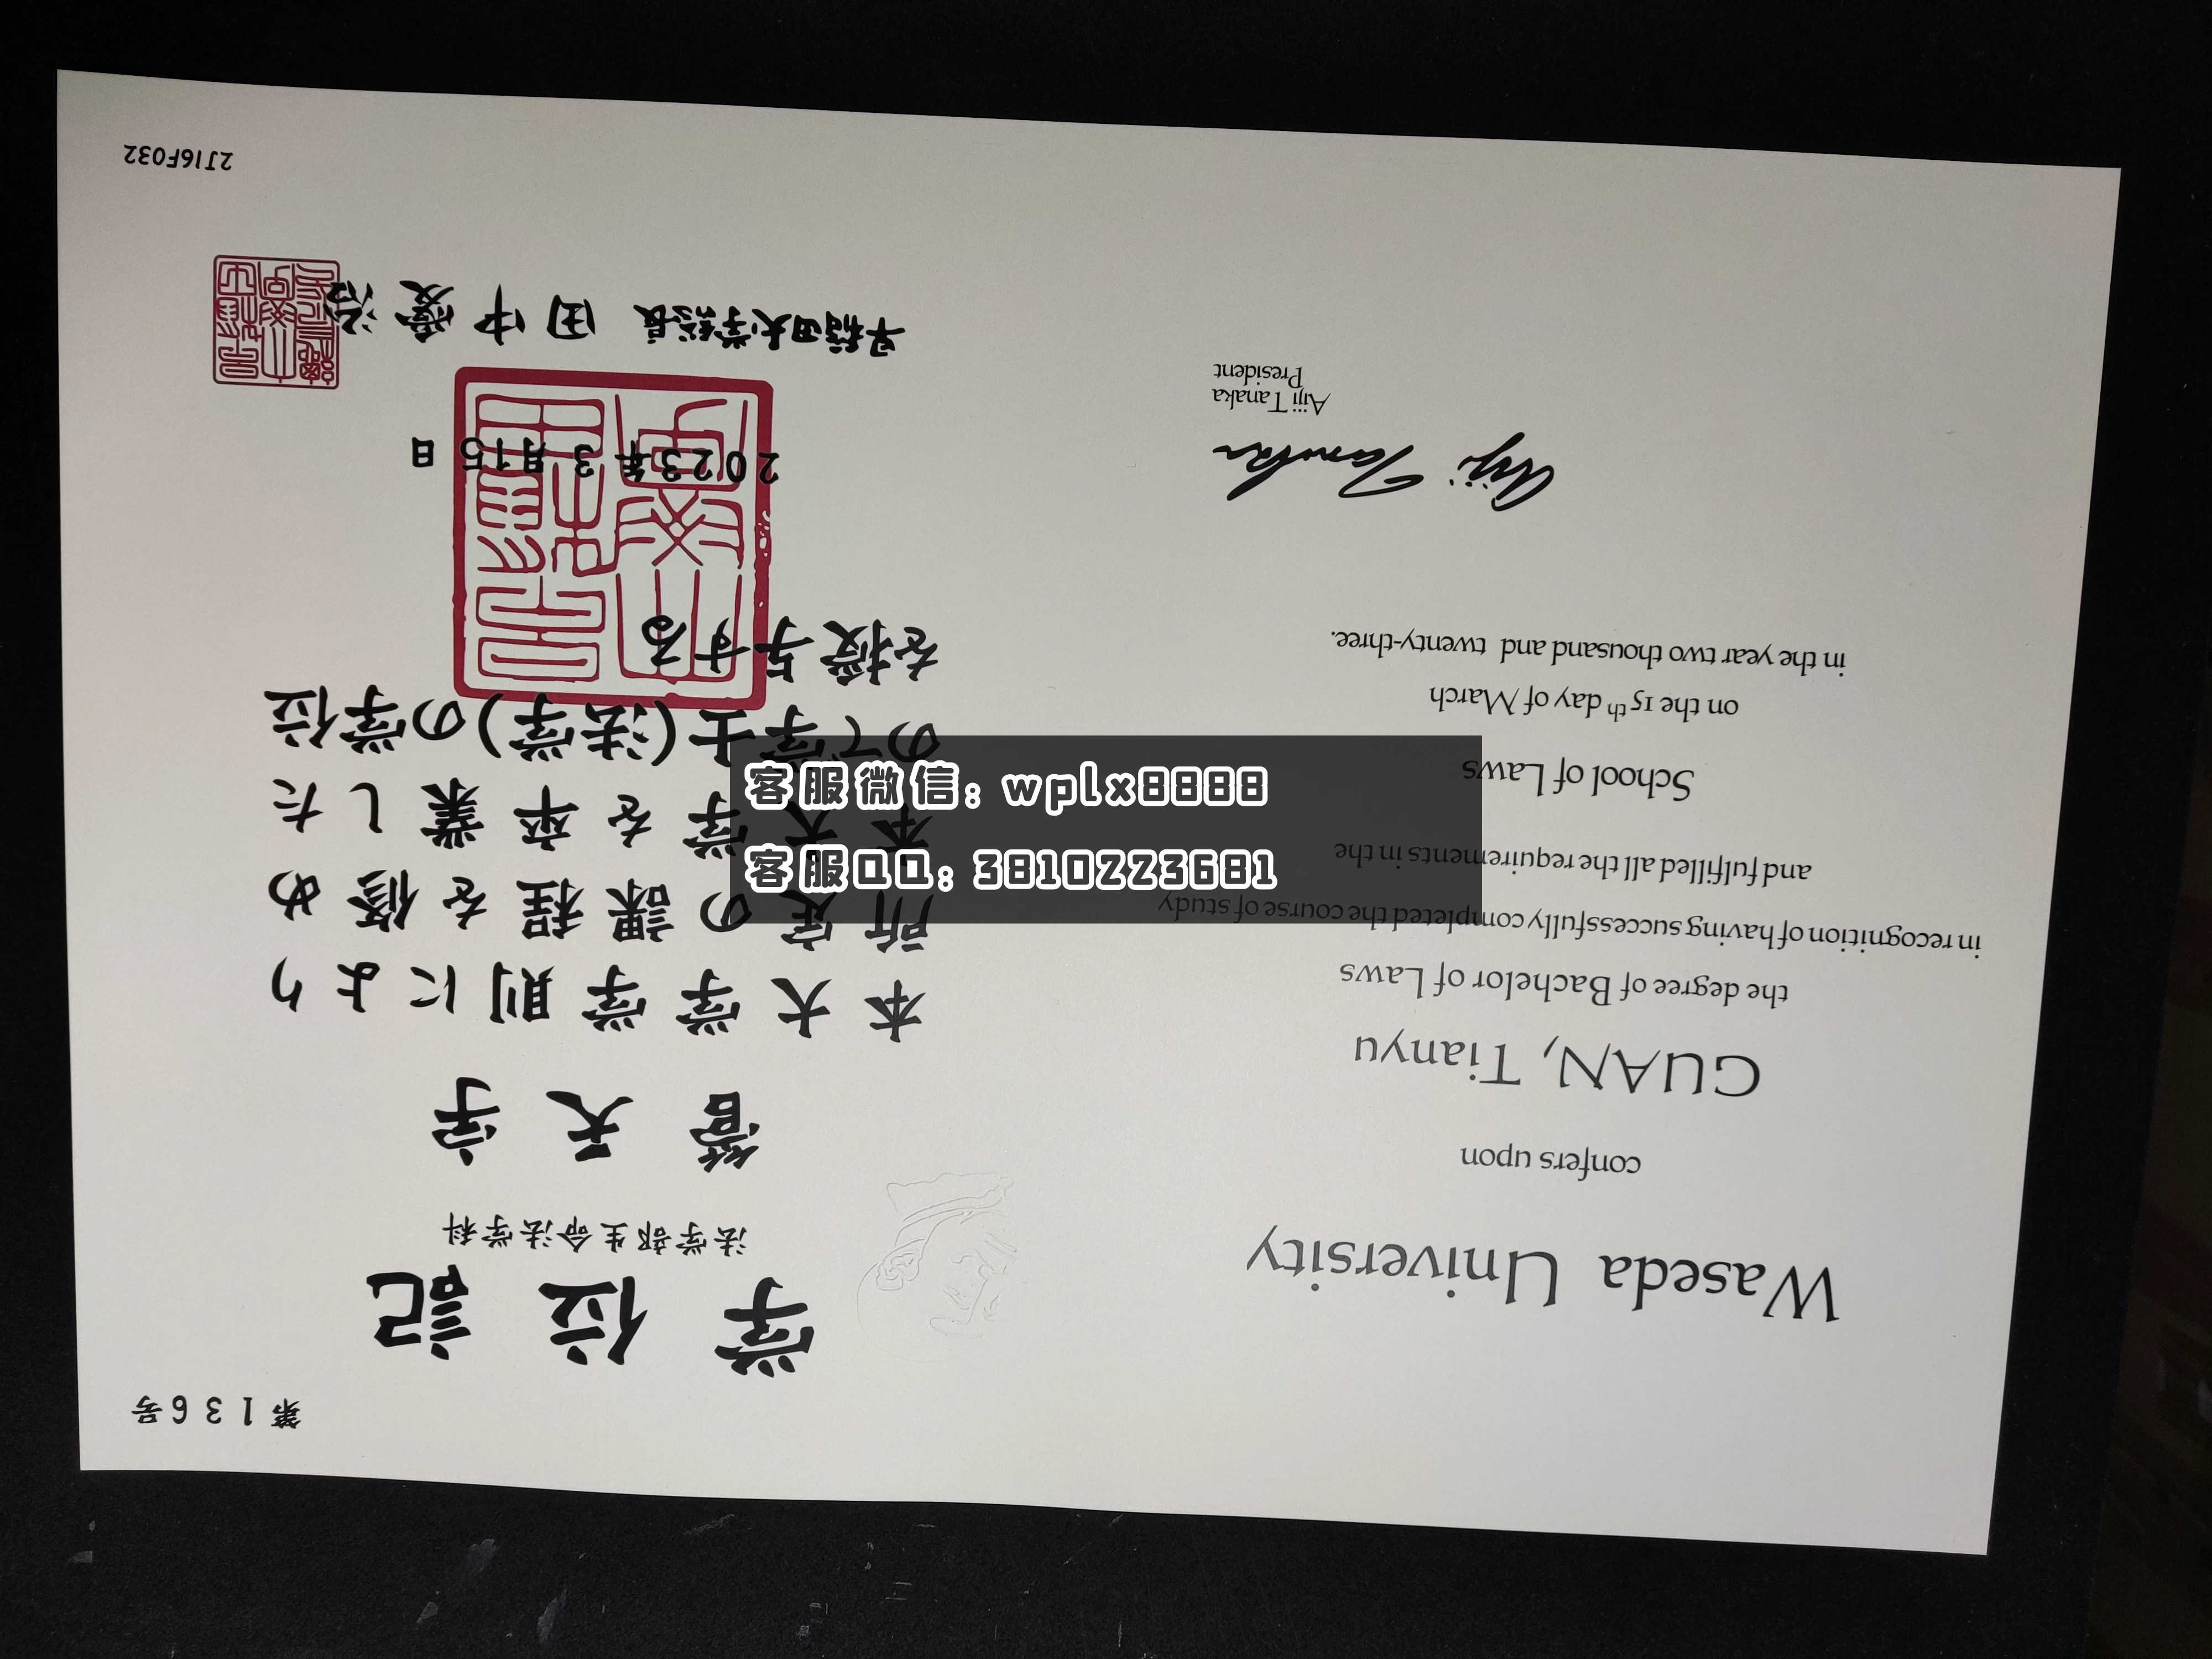 第136号
学位記
法学部生命法学科
管天宇
本大学学則により
所定の課程を修め
本大学を卒業した
ので学士(法学)の学位
を授与する
2023年3月15日
早稲田大学総長 田中愛治
2J16F032
Waseda University
confers upon
GUAN, Tianyu
the degree of Bachelor of Laws
in recognition of having successfully completed the course of study
and fulfilled all the requirements in the
School of Laws
on the 15th day of March
in the year two thousand and twenty-three.
Aiji Tanaka
Aiji Tanaka
President
客服微信: wplx8888
客服QQ: 3810223681